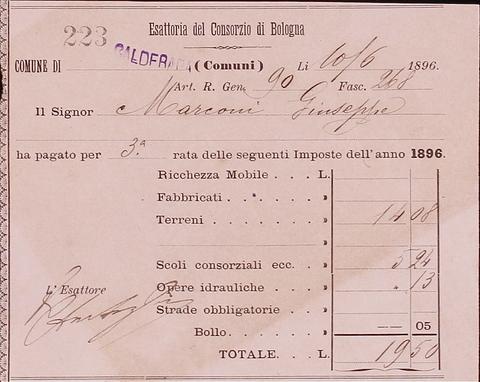 Esattoria del Consorzio di Bologna
223
COMUNE DI CALDERARA (Comuni) Li 10/6 1896.
Art. R. Gen. 90 Fasc. 268
Il Signor Marconi Giuseppe
ha pagato per 3.ª rata delle seguenti Imposte dell'anno 1896.
Ricchezza Mobile . . . L.
Fabbricati . . . . . »
Terreni . . . . . . . » 14 08
»
Scoli consorziali ecc. . . » 5 24
L'Esattore
Opere idrauliche . . . » " 13
Strade obbligatorie . . . »
Bollo. . . . » —— 05
TOTALE. . . L. 19 50